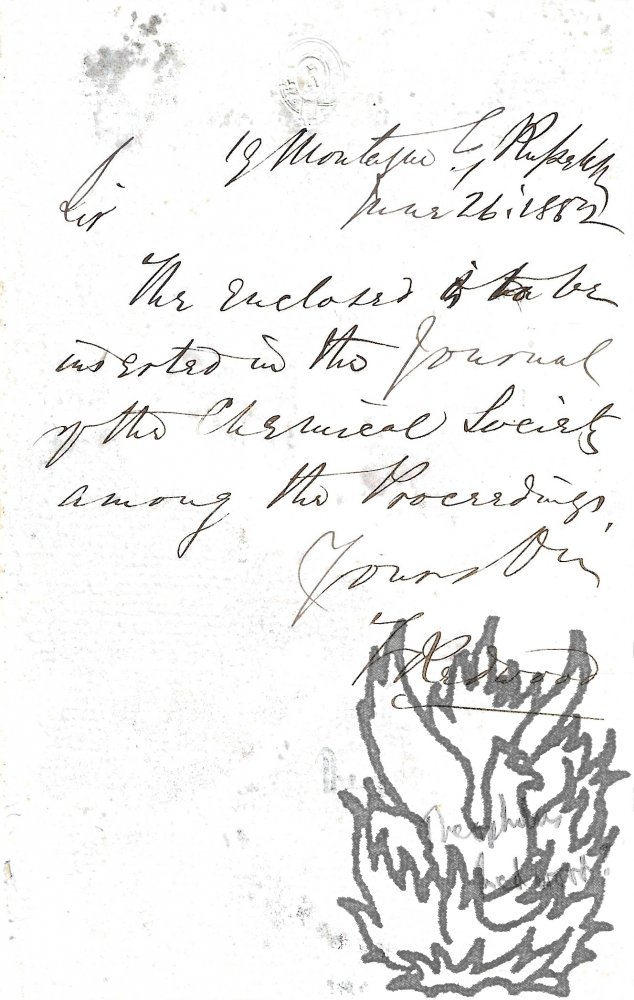 19 Montague St Russell Sq
June 26, 1882
Sir
The enclosed is to be
inserted in the Journal
of the Chemical Society
among the Proceedings.
Yours Sir
T Redwood
Theophilus
Redwood?